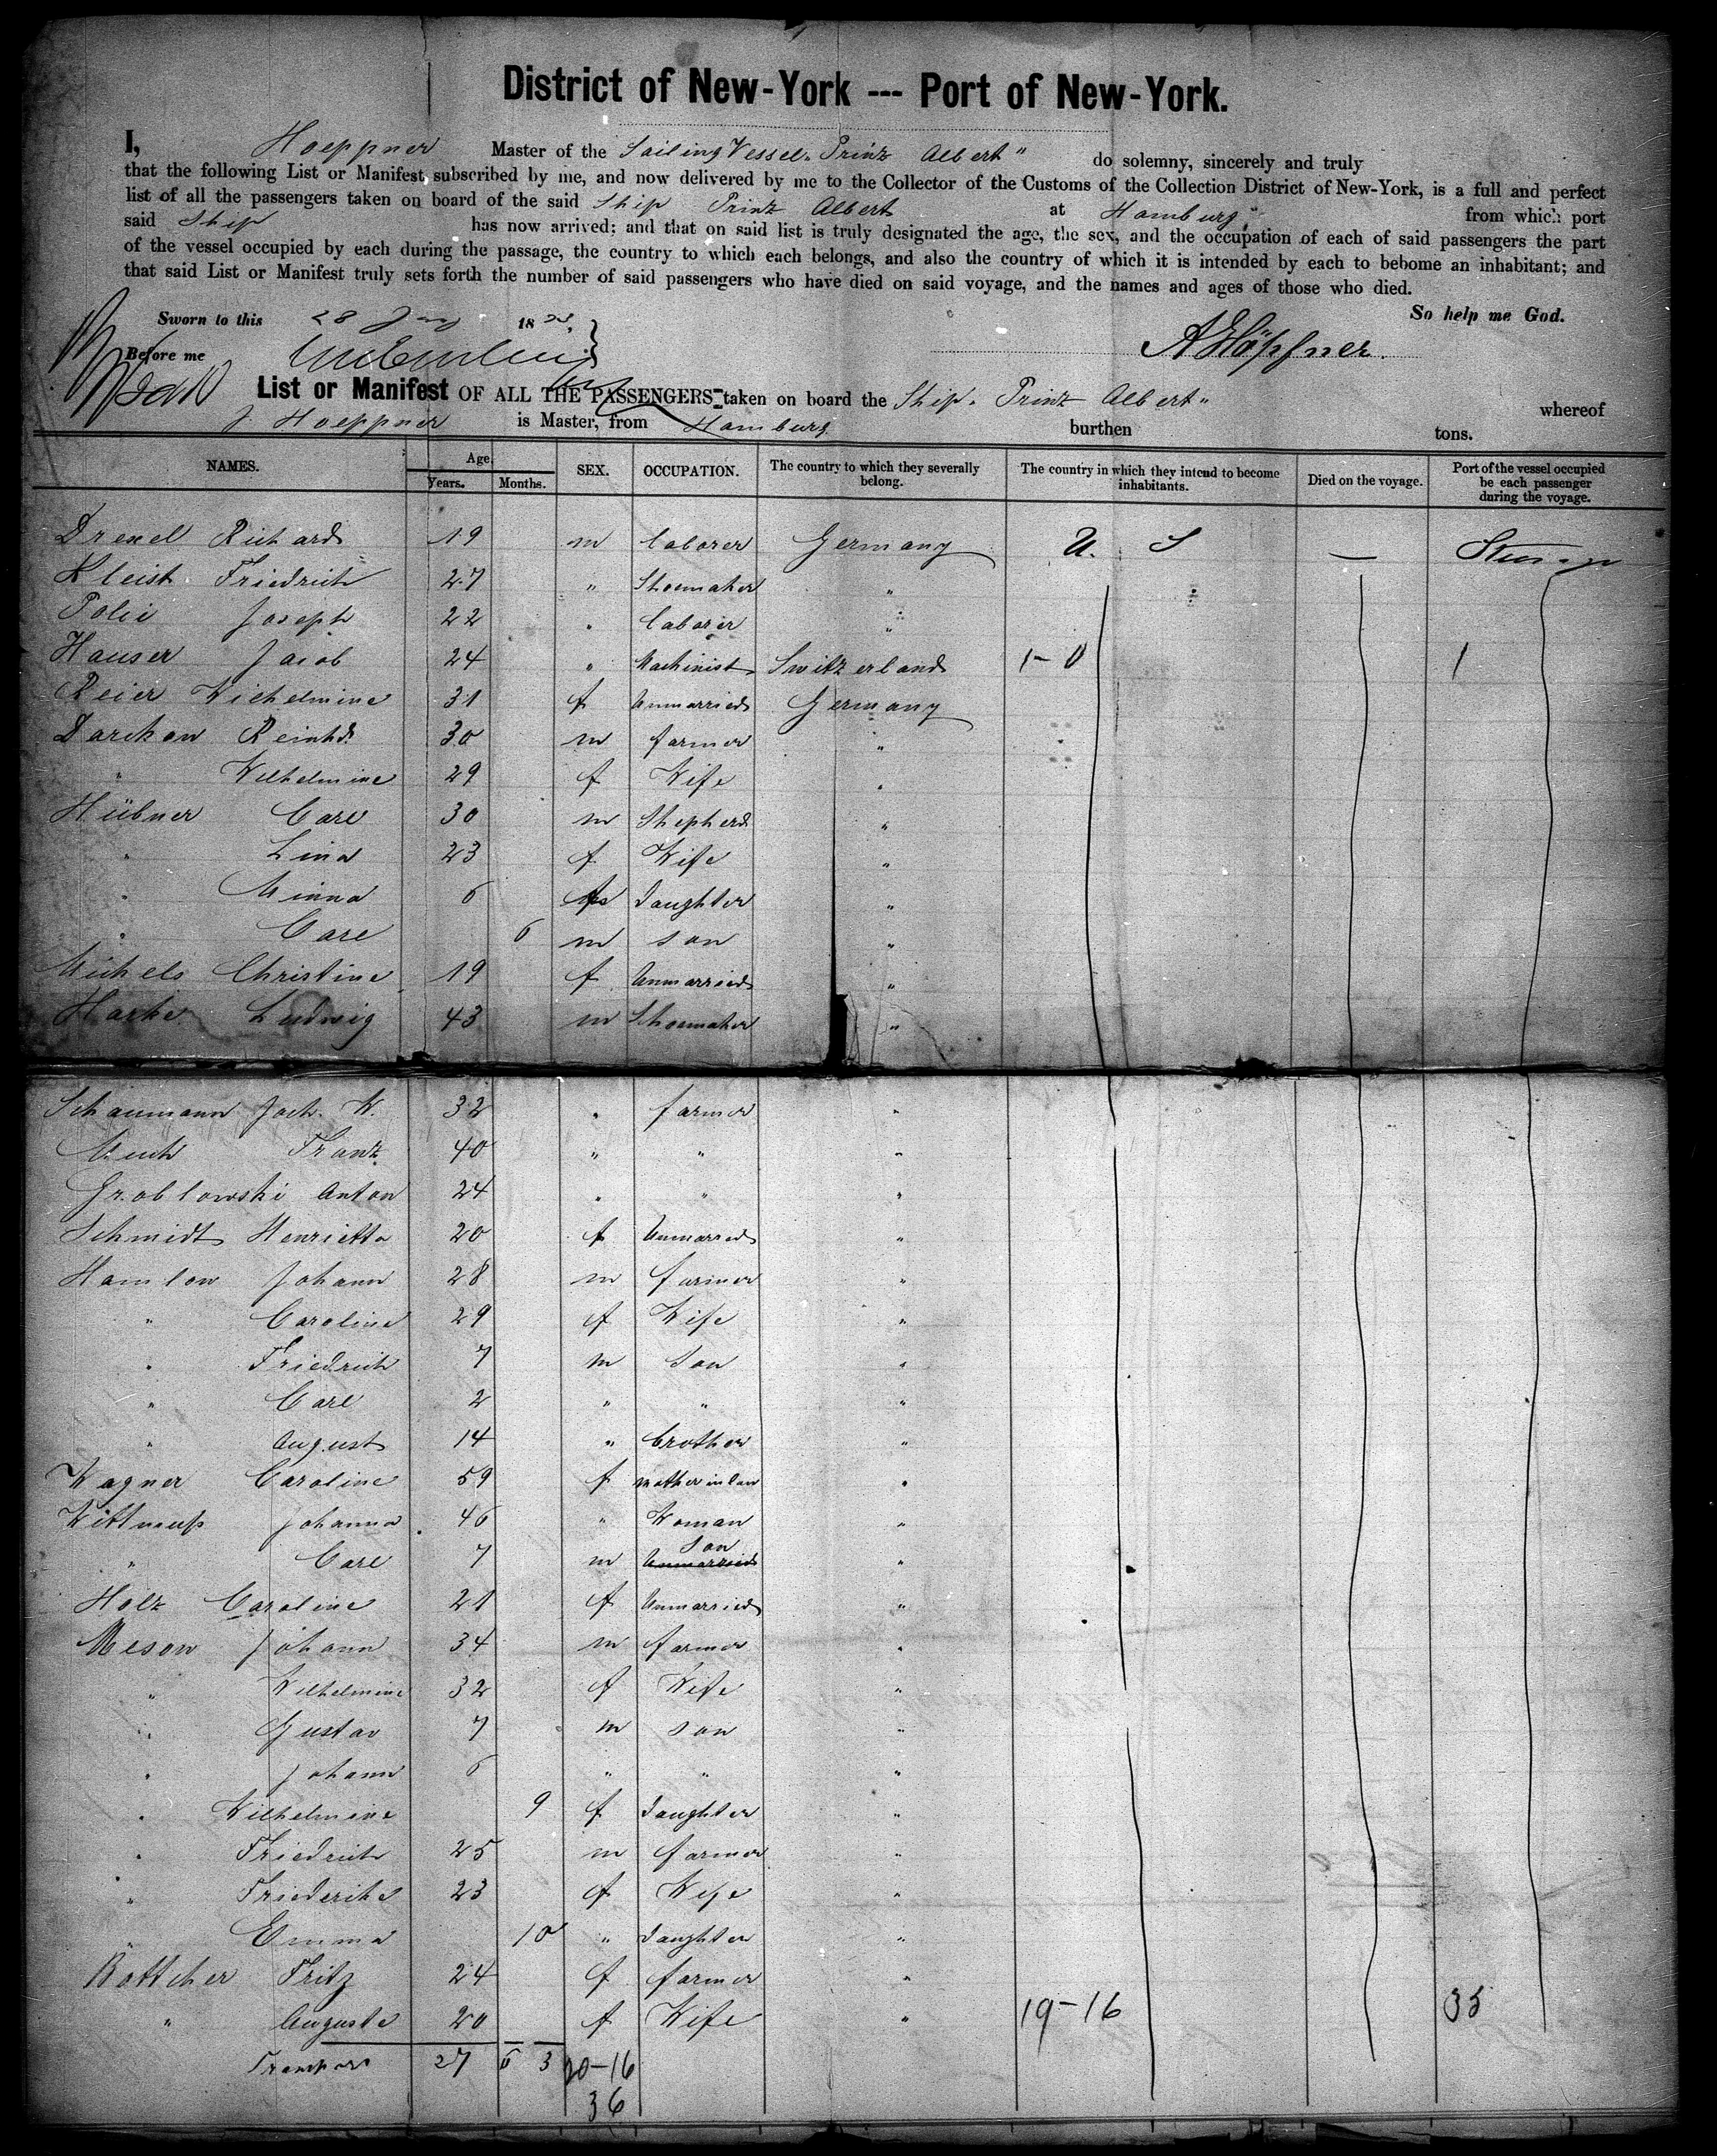 District of New-York --- Port of New-York.
I, Hoeppner Master of the Sailing Vessel "Prinz Albert" do solemny, sincerely and truly
that the following List or Manifest subscribed by me, and now delivered by me to the Collector of the Customs of the Collection District of New-York, is a full and perfect
list of all the passengers taken on board of the said Ship Prinz Albert at Hamburg from which port
said Ship has now arrived; and that on said list is truly designated the age, the sex, and the occupation of each of said passengers the part
of the vessel occupied by each during the passage, the country to which each belongs, and also the country of which it is intended by each to bebome an inhabitant; and
that said List or Manifest truly sets forth the number of said passengers who have died on said voyage, and the names and ages of those who died.
So help me God.
Sworn to this 28 18
Before me
A Höpfner.
List or Manifest OF ALL THE PASSENGERS taken on board the Ship "Prinz Albert" whereof
J. Hoeppner is Master, from Hamburg burthen tons.
NAMES. Age. Years. Months. SEX. OCCUPATION. The country to which they severally belong. The country in which they intend to become inhabitants. Died on the voyage. Port of the vessel occupied be each passenger during the voyage.
Drexel Richard 19 m laborer Germany U. S —
Kleist Friedrich 27 " Shoemaker "
Polei Joseph 22 " laborer "
Hauser Jacob 24 " Machinist Switzerland 1-0 1
Reier Wilhelmine 31 f Unmarried Germany
Darckow Reinhd. 30 m farmer "
" Wilhelmine 29 f Wife "
Hübner Carl 30 m Shepherd "
" Lina 23 f Wife "
" Minna 6 f daughter "
" Carl 6 m son "
Michels Christine 19 f Unmarried "
Harke Ludwig 43 m Shoemaker "
Schaumann Joch. W. 32 " farmer "
Franz 40 " " "
Groblowski Anton 24 " " "
Schmidt Henriette 20 f Unmarried "
Hamlow Johann 28 m farmer "
" Caroline 29 f Wife "
" Friedrich 7 m Son "
" Carl 2 " " "
" August 14 " brother "
Wagner Caroline 59 f mother in law "
Johanna 46 " Woman "
" Carl 7 m Unmarried Son "
Holz Caroline 21 f Unmarried "
Mesow Johann 34 m farmer "
" Wilhelmine 32 f Wife "
" Gustav 7 m son "
" Johann 6 " " "
" Wilhelmine 9 f daughter "
" Friedrich 25 m farmer "
" Friederike 23 f Wife "
" Emma 10 " daughter "
Bottcher Fritz 24 f farmer "
" Auguste 20 f Wife " 19-16 35
Transport 27 6 3 20-16
36